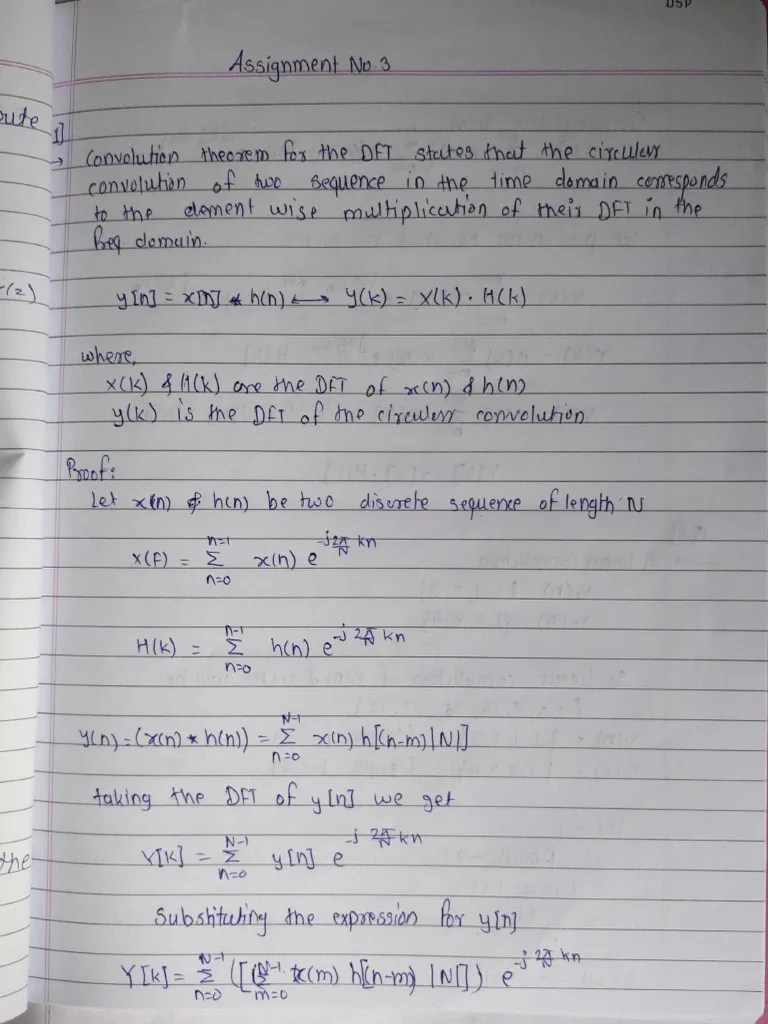 DSP
Assignment No. 3
ute
1]
→ Convolution theorem for the DFT states that the circular
convolution of two sequence in the time domain corresponds
to the element wise multiplication of their DFT in the
freq domain.
y[n] = x[n] * h(n) ⟷ Y(k) = X(k) · H(k)
where,
x(k) & H(k) are the DFT of x(n) & h(n)
y(k) is the DFT of the circular convolution
Proof:
Let x(n) & h(n) be two discrete sequence of length N
X(F) = Σ_{n=0}^{n=1} x(n) e^{-j 2π/N kn}
H(k) = Σ_{n=0}^{n-1} h(n) e^{-j 2π/N kn}
y(n) = (x(n) * h(n)) = Σ_{n=0}^{N-1} x(n) h[(n-m)|N|]
taking the DFT of y[n] we get
the
Y[k] = Σ_{n=0}^{N-1} y[n] e^{-j 2π/N kn}
Substituting the expression for y[n]
Y[k] = Σ_{n=0}^{N-1} ([Σ_{m=0}^{N-1} x(m) h[(n-m) |N|]) e^{-j 2π/N kn}